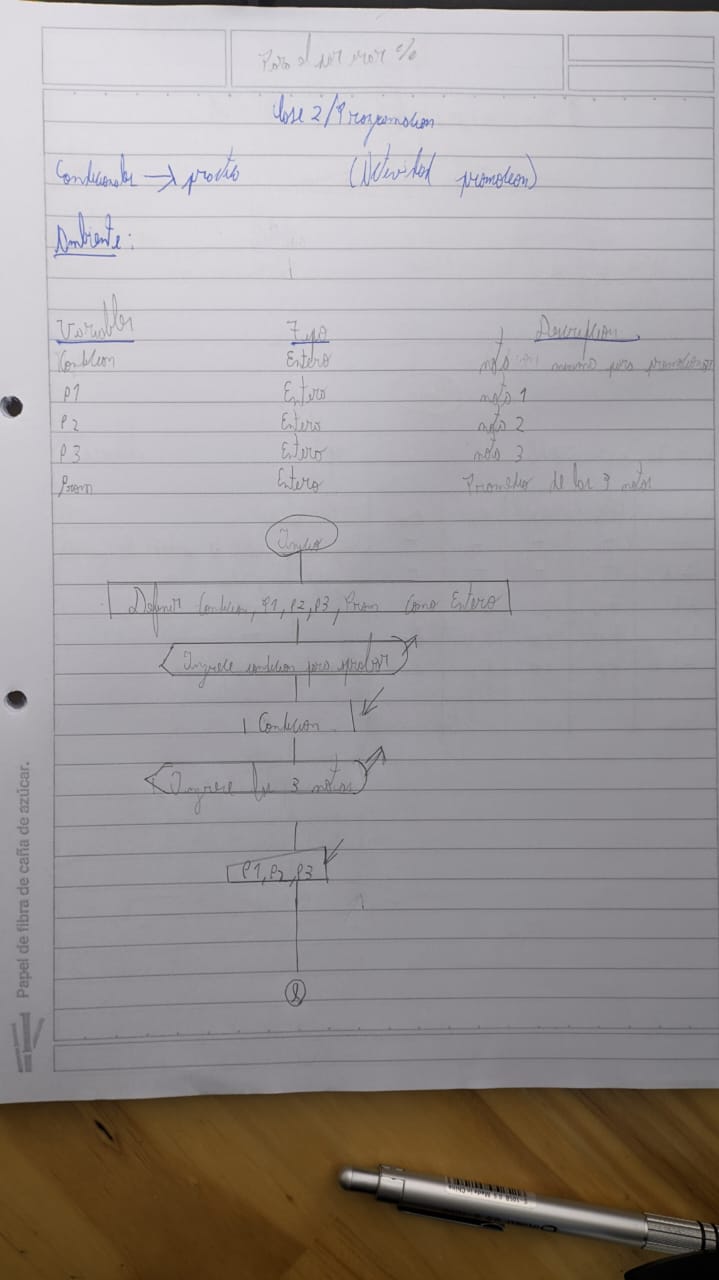 Para el por mor %
Clase 2/Programacion
Condicionales → practic (Actividad promocion)
Ambiente:
Variables Tipo Descripcion
Condicion Entero nota minima para promocionar
P1 Entero nota 1
P2 Entero nota 2
P3 Entero nota 3
Prom Entero Promedio de las 3 notas
Inicio
Definir Condicion, P1, P2, P3, Prom Como Entero
Ingrese condicion para aprobar
Condicion
Ingrese las 3 notas
P1, P2, P3
Papel de fibra de caña de azúcar.